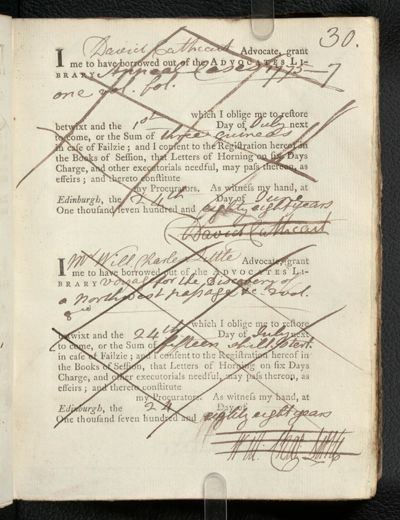 30.
I David Cathcart Advocate, grant
me to have borrowed out of the ADVOCATES LI-
BRARY Appeal Cases 1775-7
one vol. fol.
which I oblige me to restore
betwixt and the 1st Day of July next
to come, or the Sum of three guineas
in case of Failzie; and I consent to the Registration hereof in
the Books of Session, that Letters of Horning on six Days
Charge, and other executorials needful, may pass thereon, as
effeirs; and thereto constitute
my Procurators. As witness my hand, at
Edinburgh, the 24th Day of June
One thousand seven hundred and eighty eight years
David Cathcart
I Mr Will Charles Little Advocate, grant
me to have borrowed out of the ADVOCATES LI-
BRARY Voyage for the Discovery of
a Northwest Passage &c. 2 vol.
8vo
which I oblige me to restore
betwixt and the 24th Day of July next
to come, or the Sum of fifteen shill. ster:
in case of Failzie; and I consent to the Registration hereof in
the Books of Session, that Letters of Horning on six Days
Charge, and other executorials needful, may pass thereon, as
effeirs; and thereto constitute
my Procurators. As witness my hand, at
Edinburgh, the 24 Day of
One thousand seven hundred and eighty eight years
Will. Char. Little